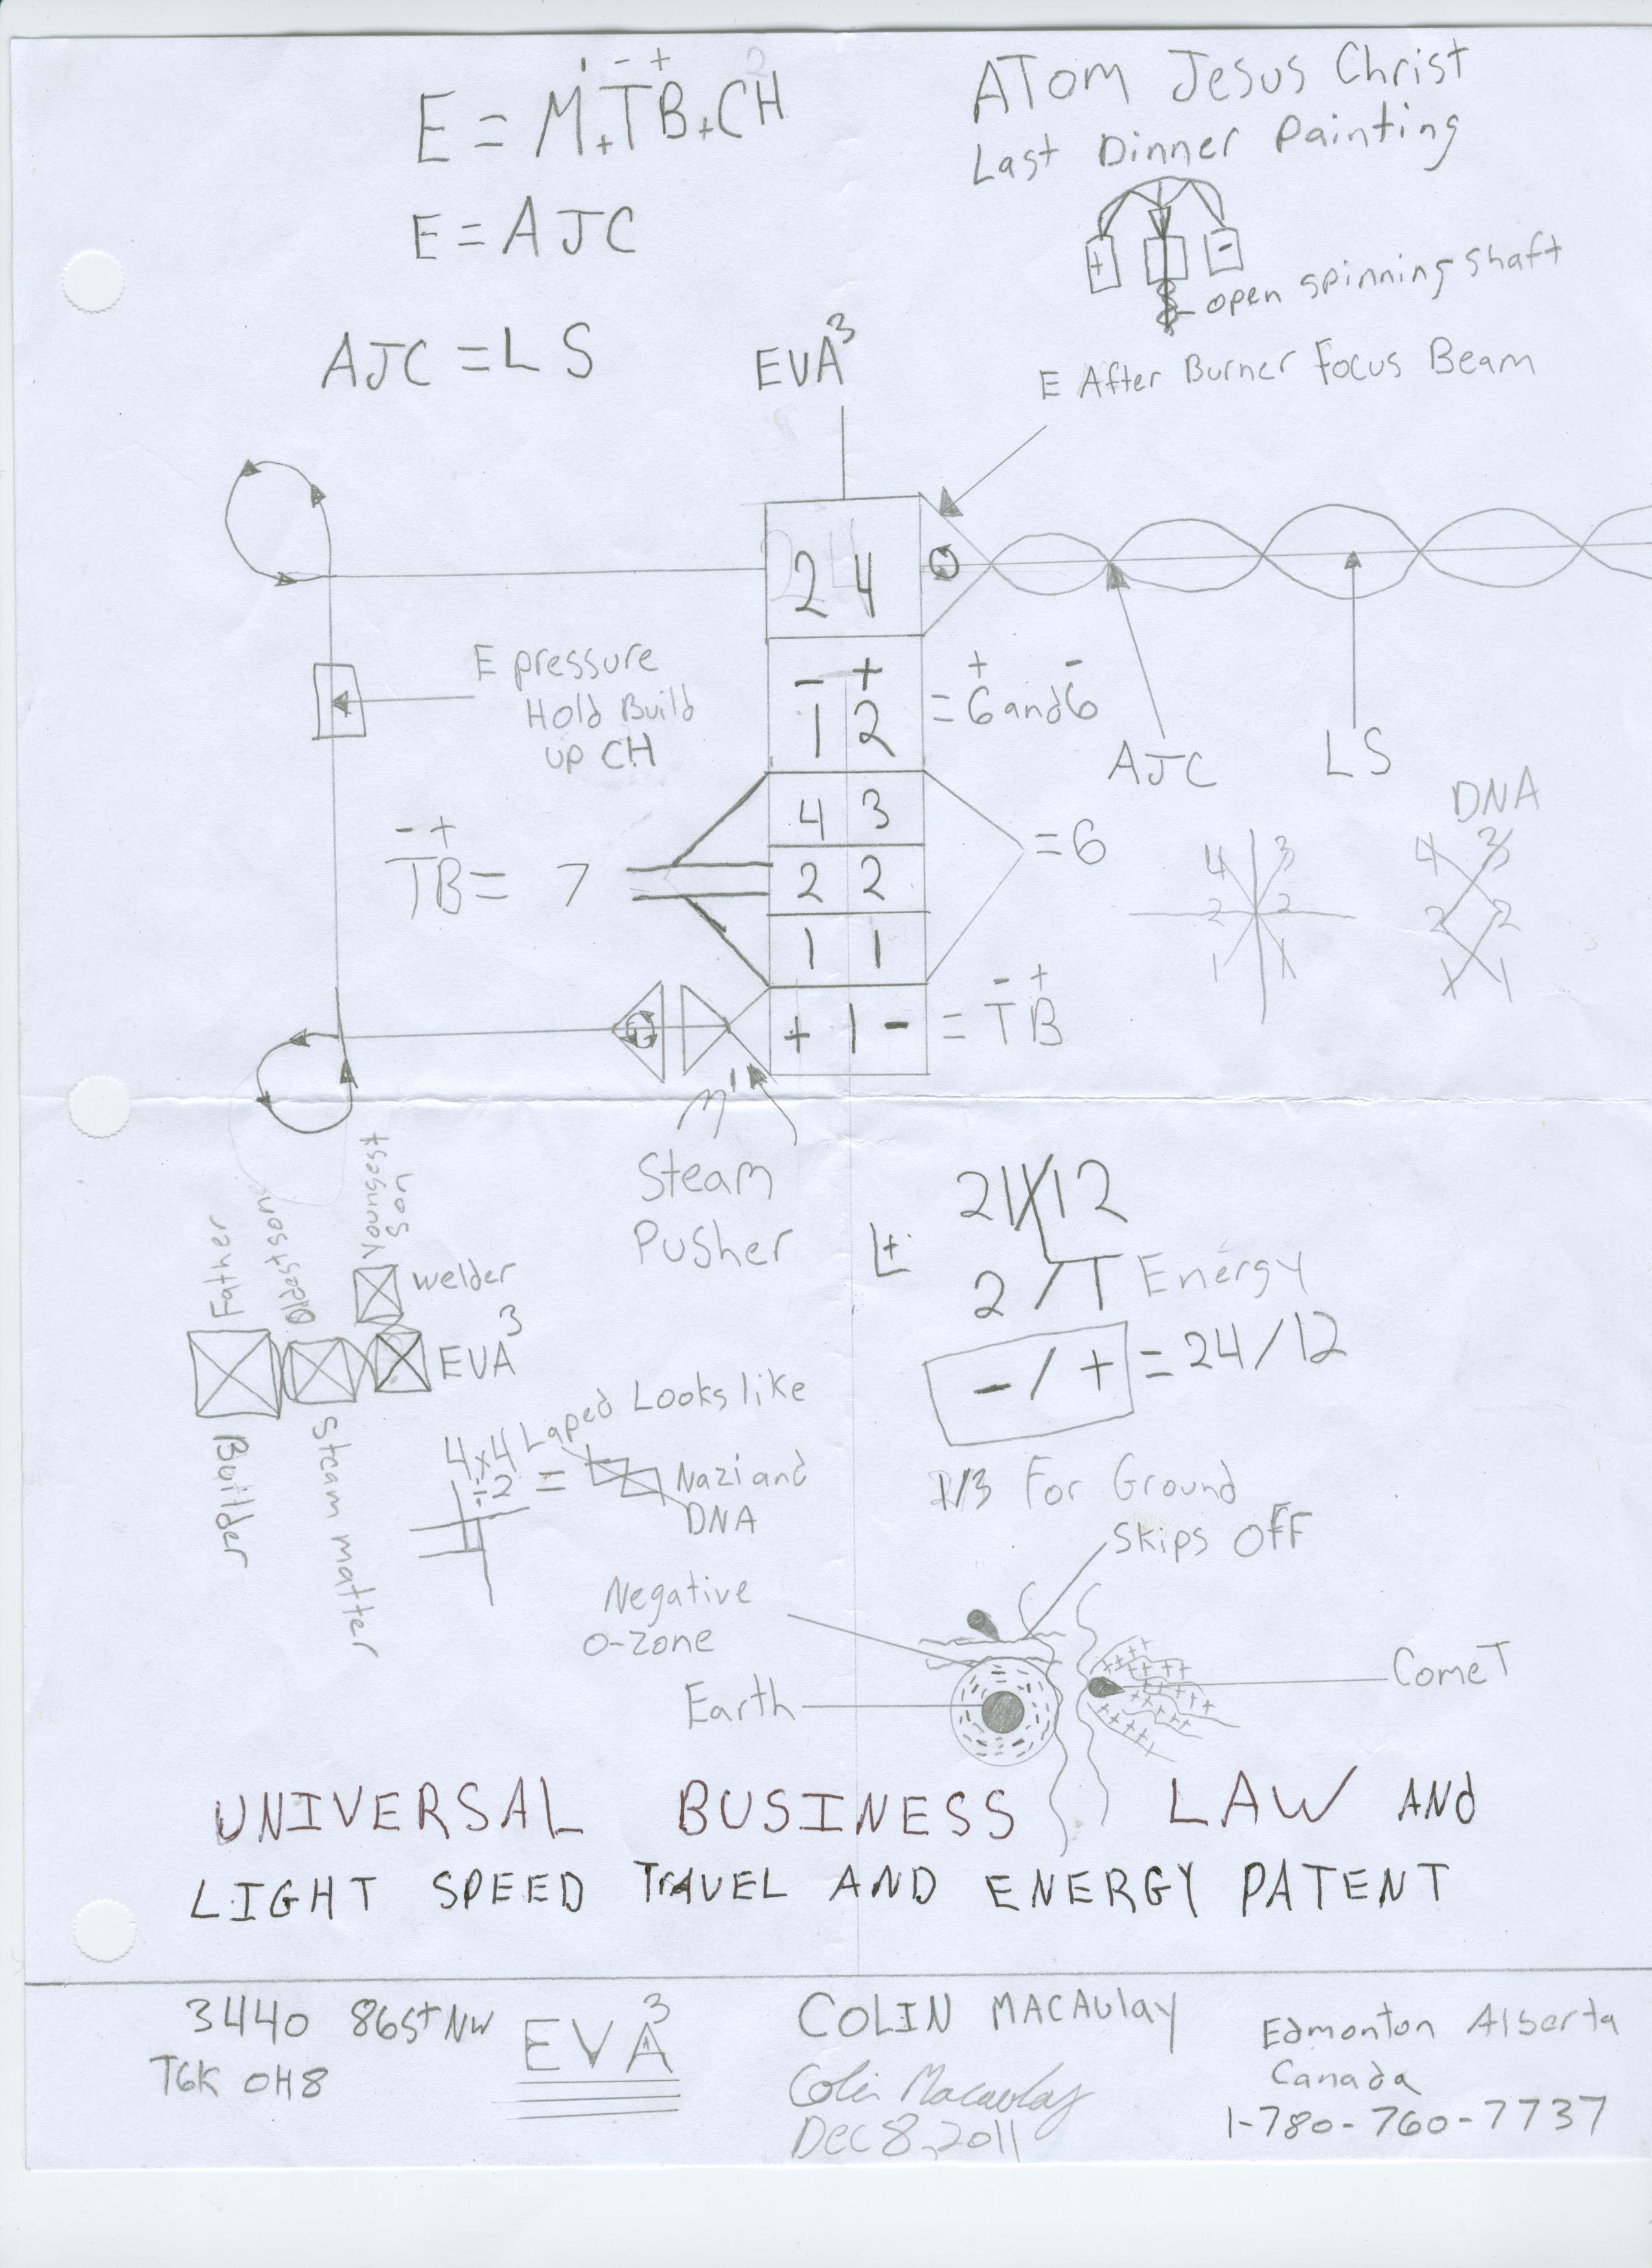 E = M+TB+CH
ATom Jesus Christ
Last Dinner Painting
E = AJC
+ -
open spinning shaft
AJC = LS
EVA³
E After Burner Focus Beam
24
E pressure
Hold Build
up CH
- +
12
= 6 and 6
+ -
AJC
LS
DNA
4 3
2 2
1 1
- +
TB = 7
= 6
4 3
2 2
1 1
4 3
2 2
1 1
+ 1 -
- +
= TB
M'
Steam
Pusher
Father
Oldest son
Youngest
son
welder
EVA³
Builder
Steam matter
21/12
2/T Energy
- / + = 24/12
Laped Looks like
4x4
=
Nazi and
DNA
1/3 For Ground
Skips OFF
Negative
O-zone
Earth
ComeT
UNIVERSAL BUSINESS LAW ANd
LIGHT SPEED TrAVEL AND ENERGY PATENT
3440 86St NW
T6K 0H8
EVA³
COLIN MACAulay
Colin Macaulay
Dec 8, 2011
Edmonton Alberta
Canada
1-780-760-7737